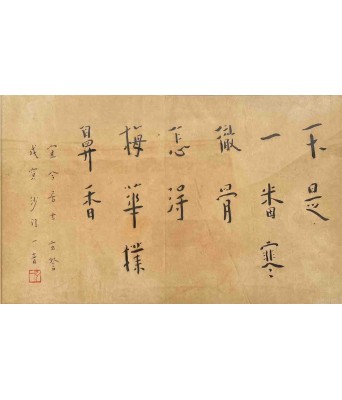 不是
一番寒
徹骨
怎得
梅華撲
鼻香
居士
沙門一音